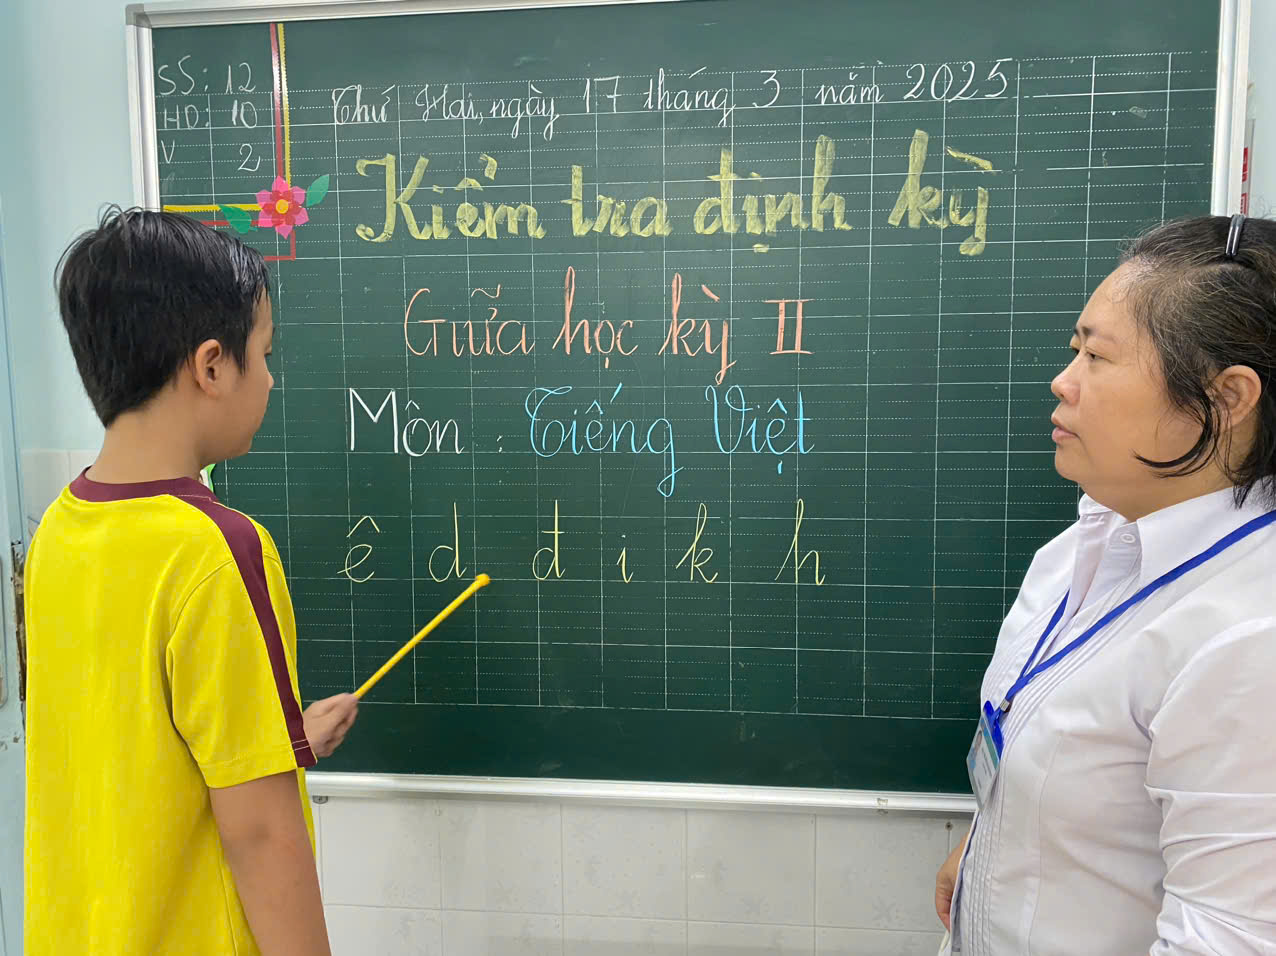 SS: 12
HD: 10
V 2
Thứ Hai, ngày 17 tháng 3 năm 2025
Kiểm tra định kỳ
Giữa học kỳ II
Môn : Tiếng Việt
ê d đ i k h